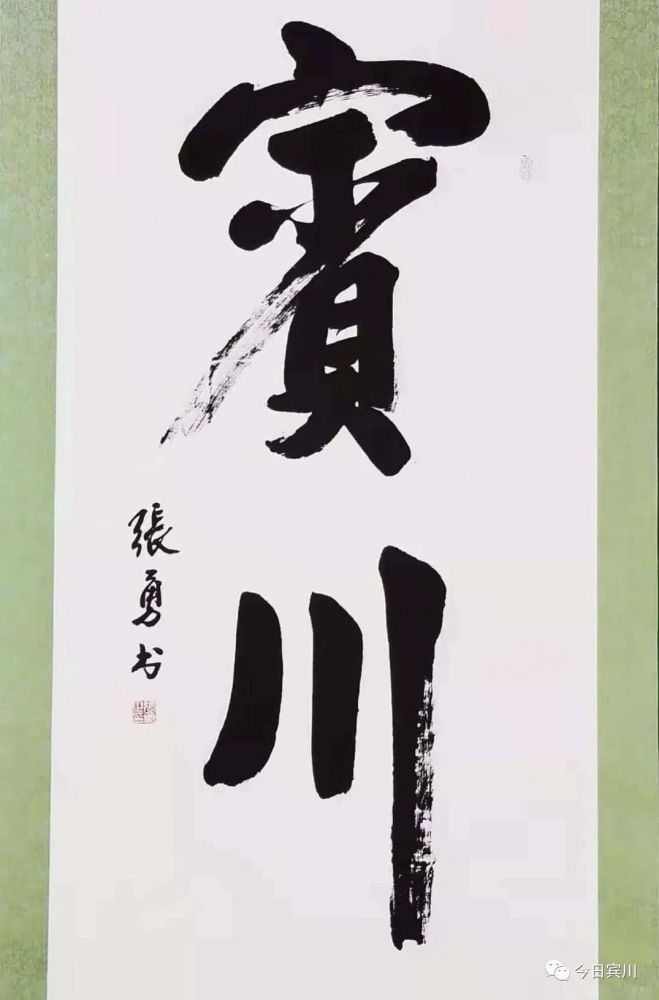 賓川
張勇书
今日宾川